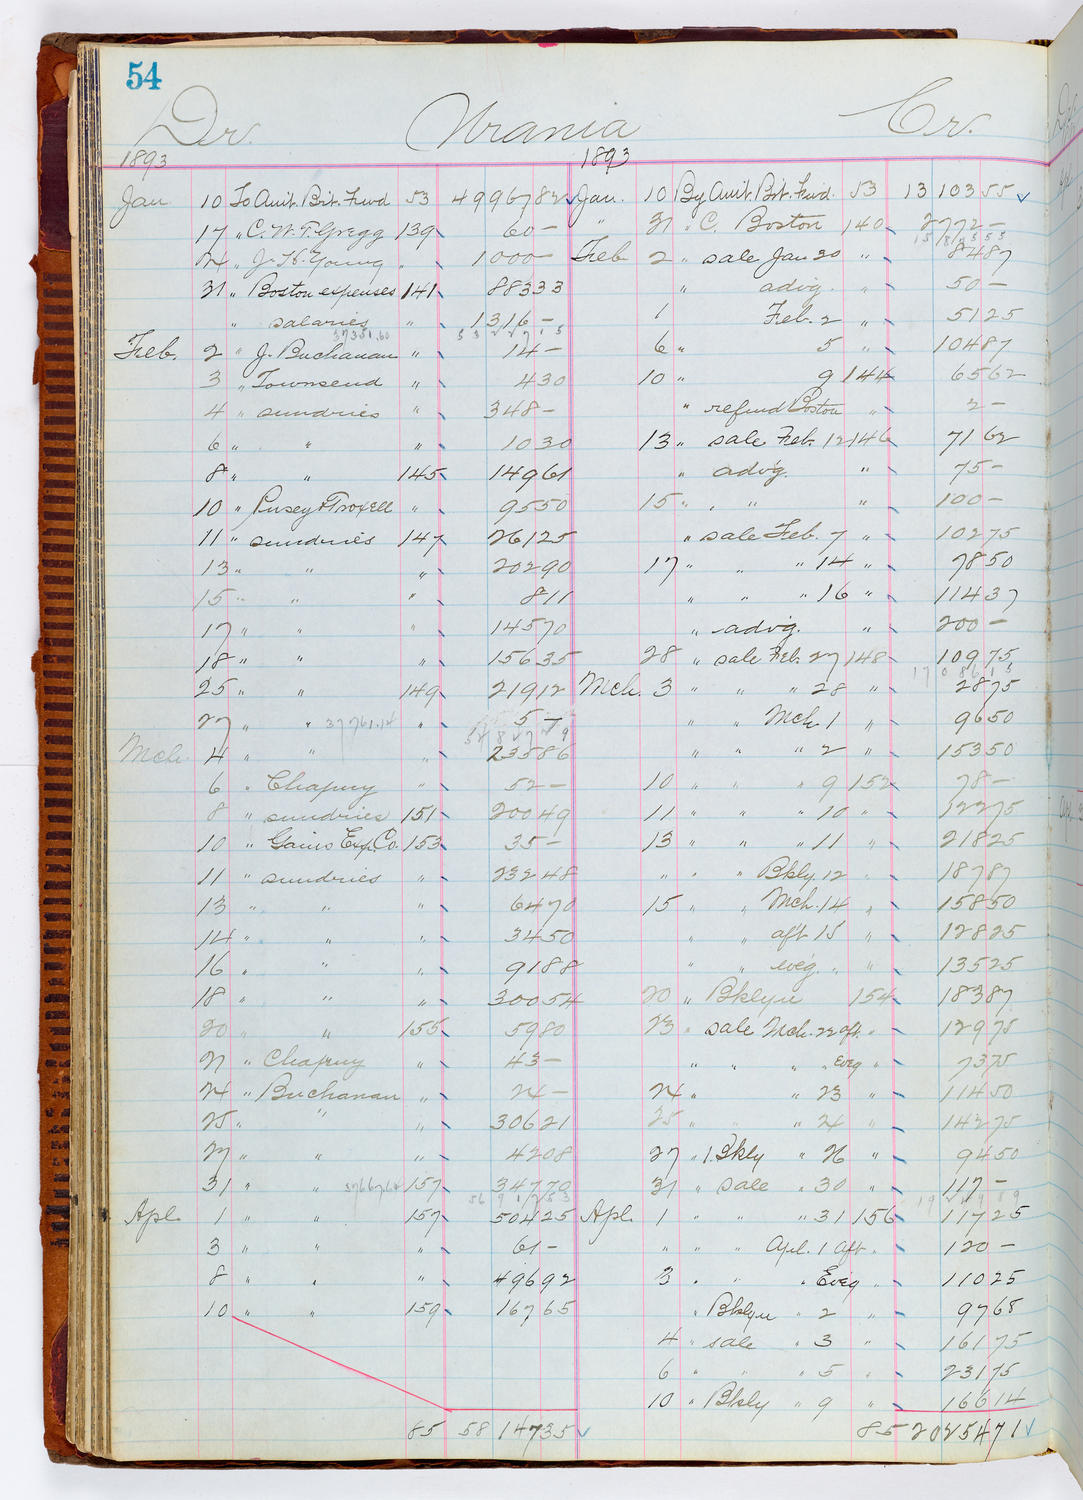 54
Dr. Urania Cr.
1893 1893
Jan. 10 To Amt. Brt. Fwd 53 49 967 82 ✓
17 " C. W. T. Gregg 139 60 —
24 " J. H. Young " 1000 —
31 " Boston expenses 141 883 33
" salaries " 1316 —
37351.60 53 227 15
Feb. 2 " J. Buchanan " 14 —
3 " Townsend " 4 30
4 " sundries " 348 —
6 " " " 10 30
8 " " 145 149 61
10 " Pusey & Troxell " 95 50
11 " sundries 147 261 25
13 " " " 202 90
15 " " " 8 11
17 " " " 145 70
18 " " " 156 35
25 " " 149 219 12
27 " " 37761.14 " 5 —
Mch. 4 " " " 235 86
6 " Chapuy " 52 —
8 " sundries 151 200 49
10 " Gaius Exp. Co. 153 35 —
11 " sundries " 232 48
13 " " " 64 70
14 " " " 34 50
16 " " " 91 88
18 " " " 300 54
20 " " 155 59 80
21 " Chapuy " 43 —
24 " Buchanan " 24 —
25 " " " 306 21
27 " " " 42 08
31 " " 37667.64 157 347 70
56 917 53
Apl. 1 " " 157 504 25
3 " " " 61 —
8 " " " 496 92
10 " " 159 167 65
85 58 147 35 ✓
Jan. 10 By Amt. Brt. Fwd. 53 13 103 55 ✓
" 31 " C. Boston 140 2772 —
15 875 55
Feb 2 " sale Jan 20 " 84 87
" advg. " 50 —
1 Feb. 2 " 51 25
6 " 5 " 104 87
10 " 9 144 65 62
" refund Boston " 2 —
13 " sale Feb. 12 146 71 62
" advg. " 75 —
15 " " " " 100 —
" sale Feb. 7 " 102 75
17 " " " 14 " 78 50
" " " 16 " 114 37
" advg. " 200 —
28 " sale Feb. 27 148 109 75
17 086 15
Mch. 3 " " " 28 " 28 75
" " Mch. 1 " 96 50
" " " 2 " 153 50
10 " " " 9 152 78 —
11 " " " 10 " 122 75
13 " " " 11 " 218 25
" " " Bkly. 12 " 187 87
15 " " Mch. 14 " 158 50
" " aft 15 " 128 25
" " eve'g. " " 135 25
20 " Bklyn 154 183 87
23 " sale Mch. 22 aft. " 129 75
" " " " Eveg " 73 75
24 " " 23 " 114 50
25 " " " 24 " 142 75
27 " 1. Bkly " 26 " 94 50
31 " sale " 30 " 117 —
19 249 89
Apl. 1 " " " 31 156 117 25
" " " Apl. 1 aft. " 120 —
3 " " " Eveg " 110 25
" Bklyn " 2 " 97 68
4 " sale " 3 " 161 75
6 " " " 5 " 231 75
10 " Bkly " 9 " 166 14
85 20 254 71 ✓